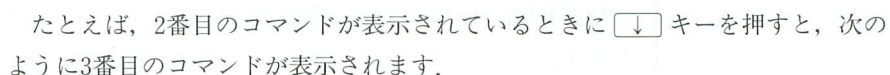 たとえば，2番目のコマンドが表示されているときに ↓ キーを押すと，次の
ように3番目のコマンドが表示されます．